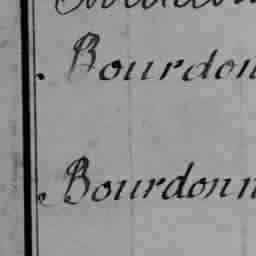 Bourdon
Bourdonn